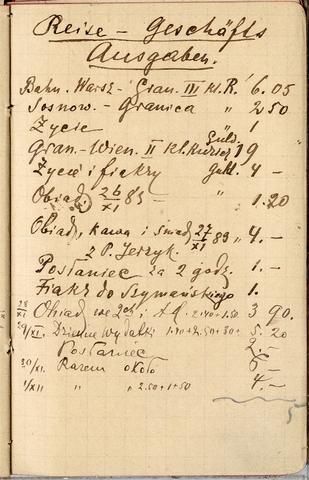 Reise - Geschäfts
Ausgaben.
Bahn. Warsz - Gran. III Kl. R. 6.05
Sosnow. - Granica " 2 50
Życie " 1
Gran - Wien. II Kl. Kurier Guld. 19
Życie i fiakry Guld. 4 -
Obiad. 26/XI 83 - " 1.20
Obiad, kawa i śniad. 27/XI 83 " 4.-
z P. Jerzyk.
Posłaniec za 2 godz. 1.-
Fiakr do Szymańskiego 1.
28/XI Obiad we 2ch i 2.40+1.50 3 90.
29/XI. Dzienn wydatki 5.20
Posłaniec 2.-
30/XI. Razem około 6 -
1/XII " " " 2.50+1+50 4.-
5